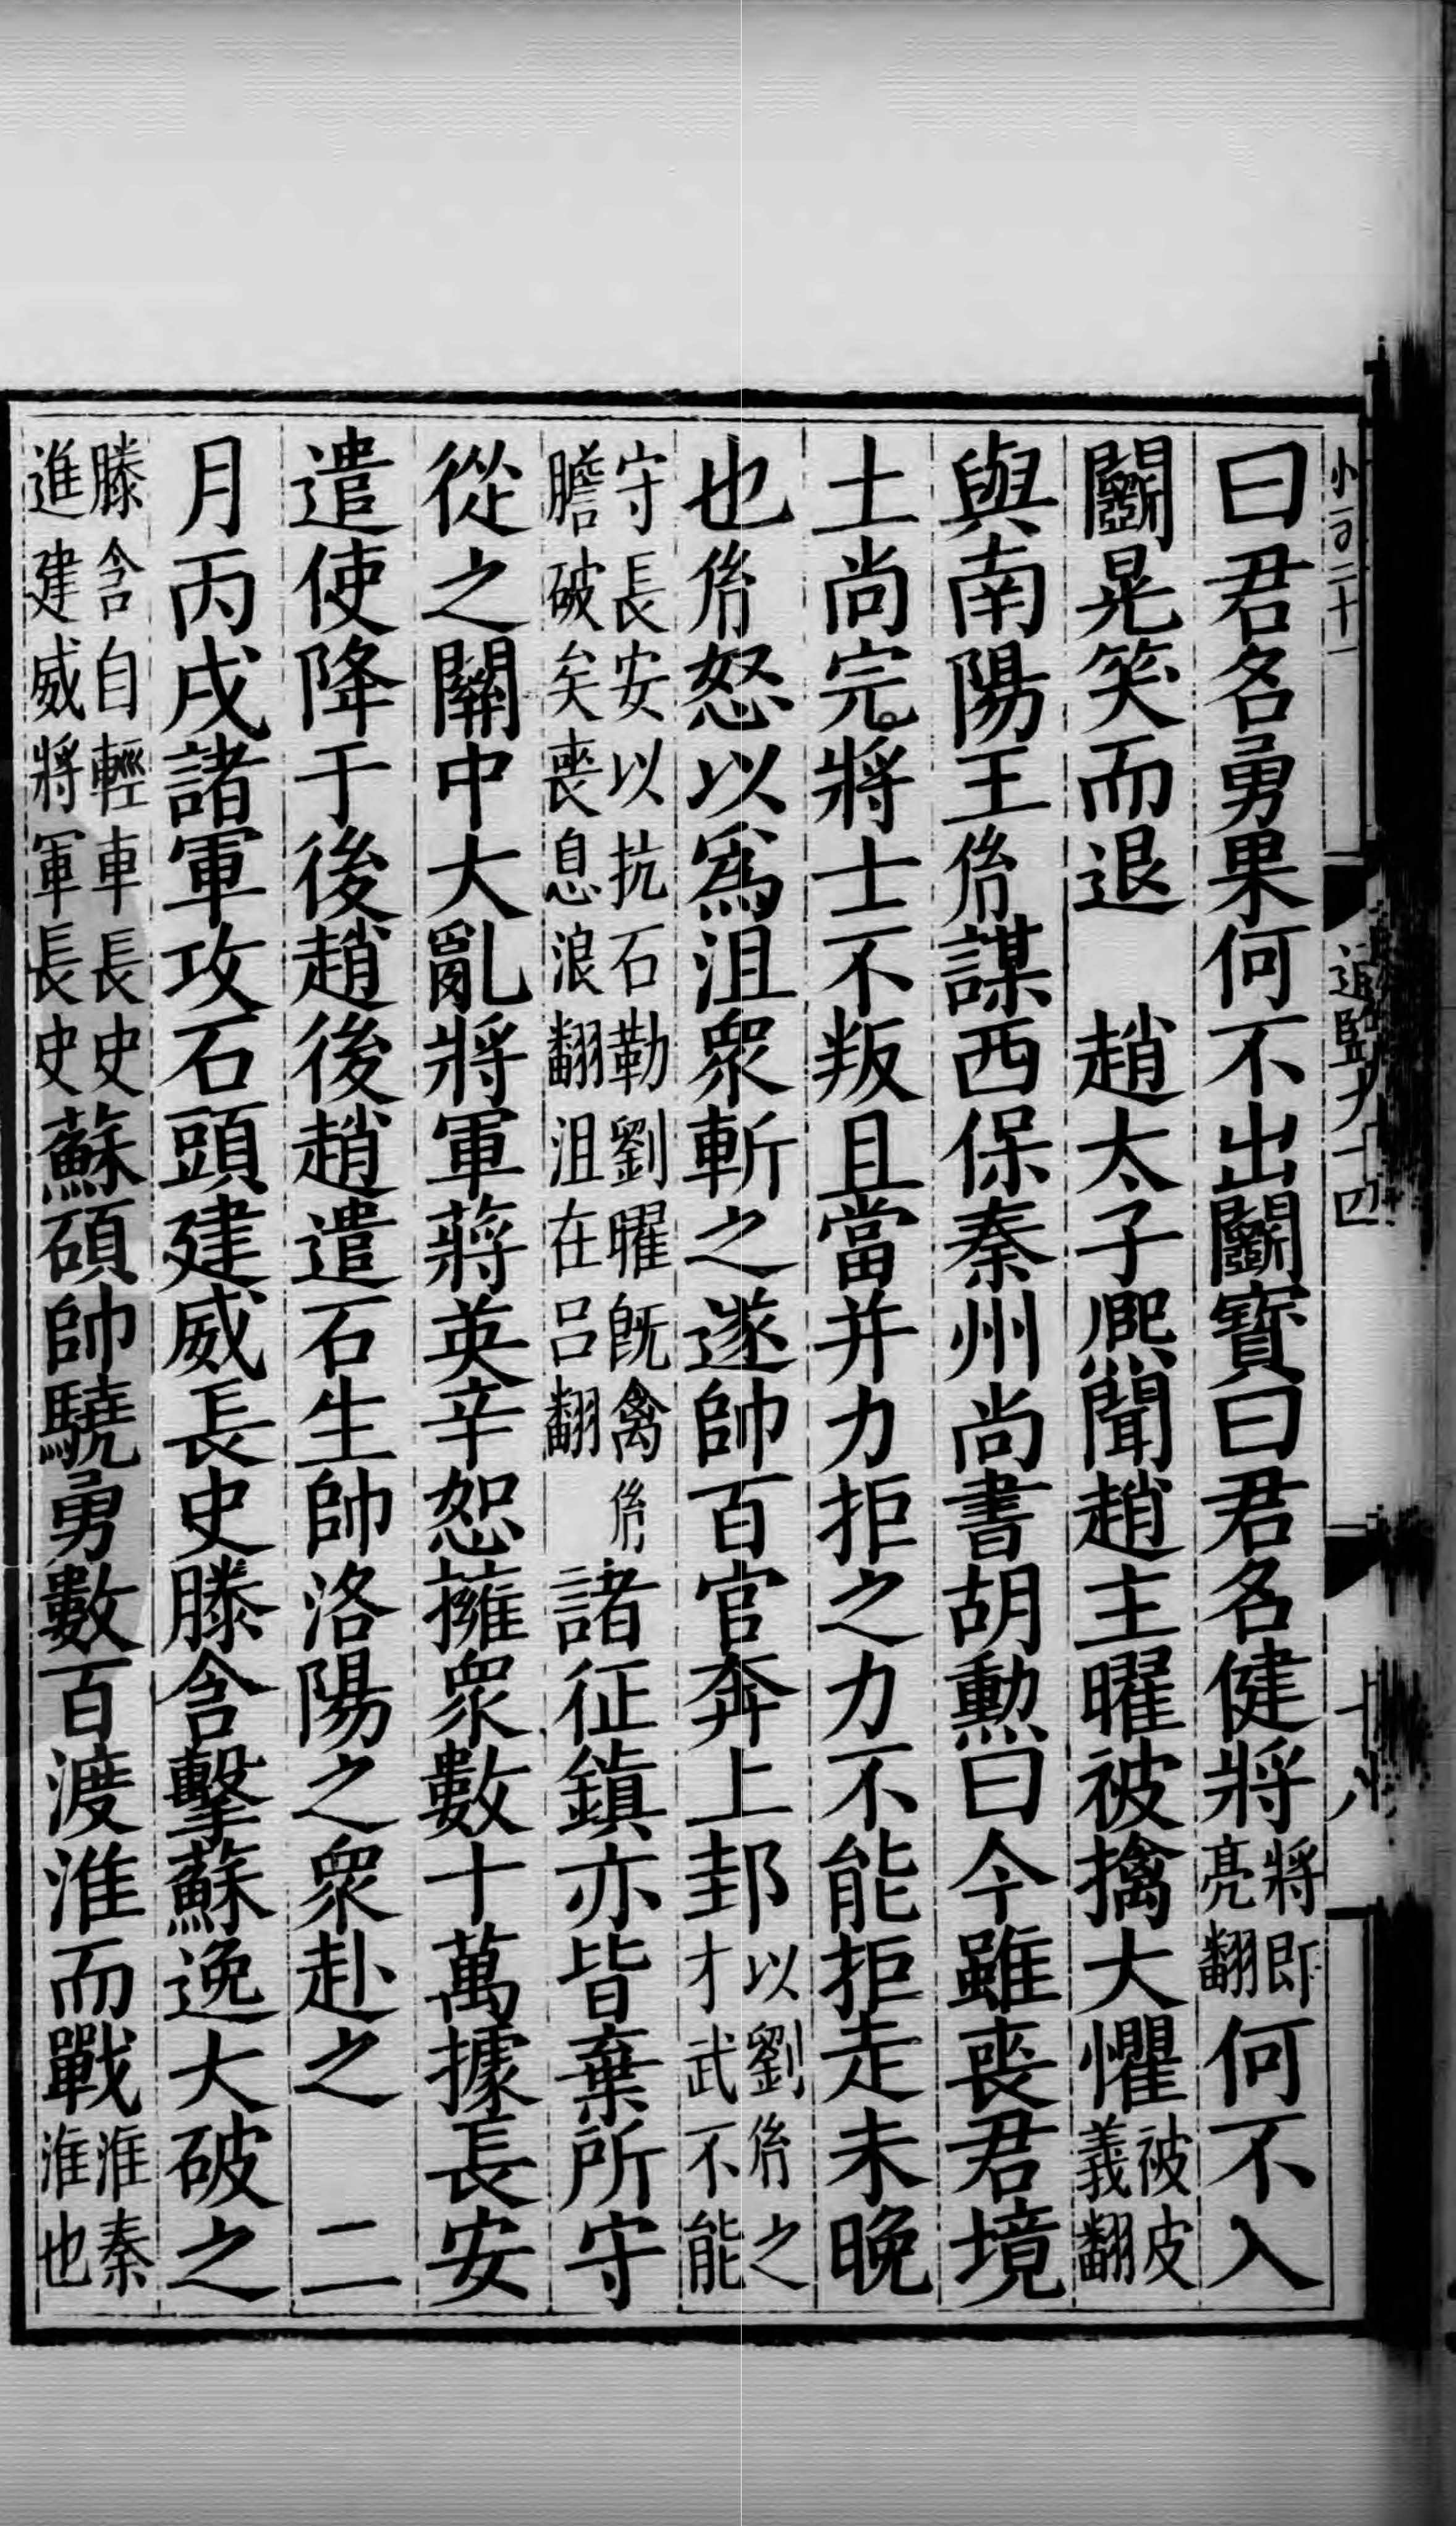 小一百二十一
通鑑九十四
十八
曰君名勇果何不出鬭寶曰君名健將將即亮翻何不入
鬭晃笑而退　趙太子熈聞趙主曜被擒大懼被皮義翻
與南陽王㣧謀西保秦州尚書胡勳曰今雖喪君境
土尚完將士不叛且當并力拒之力不能拒走未晚
也㣧怒以爲沮衆斬之遂帥百官奔上邽以劉㣧之才武不能
守長安以抗石勒劉曜旣禽㣧膽破矣喪息浪翻沮在呂翻諸征鎮亦皆棄所守
從之關中大亂將軍蔣英辛恕擁衆數十萬據長安
遣使降于後趙後趙遣石生帥洛陽之衆赴之　二
月丙戌諸軍攻石頭建威長史滕含擊蘇逸大破之
滕含自輕車長史進建威將軍長史蘇碩帥驍勇數百渡淮而戰淮秦淮也